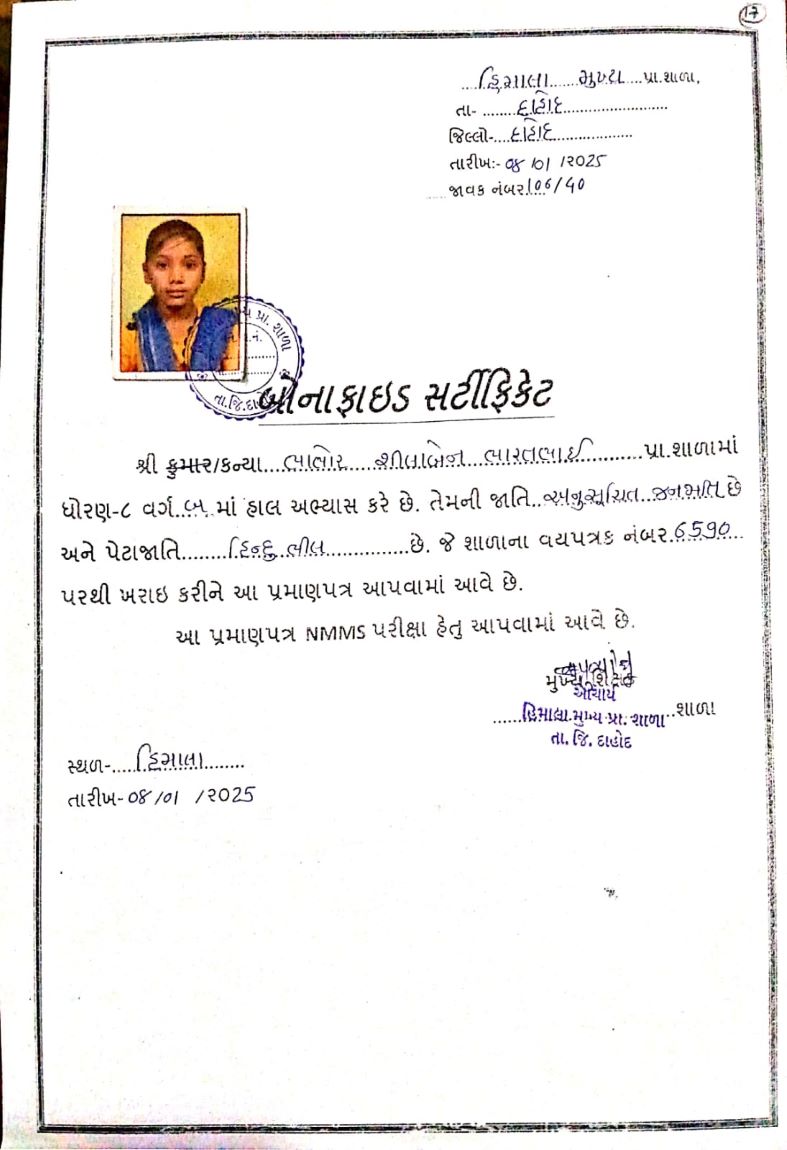 17
હિમાલા મુખ્ય પ્રા.શાળા,
તા- ........દાહોદ........................
જિલ્લો-....દાહોદ..................
તારીખ:- ૦૪ /૦1 /૨૦25
જાવક નંબર.106/40
પ્રા. શાળા
તા.જિ.દાહોદ
બોનાફાઇડ સર્ટીફિકેટ
શ્રી કુમાર/કન્યા...ભાભોર શીલાબેન ભારતભાઈ..........પ્રા.શાળામાં
ધોરણ-૮ વર્ગ..બ..માં હાલ અભ્યાસ કરે છે. તેમની જાતિ..અનુસૂચિત..જનજાતિ.છે
અને પેટાજાતિ........હિન્દુ ભીલ..............છે. જે શાળાના વયપત્રક નંબર.6590...
પરથી ખરાઇ કરીને આ પ્રમાણપત્ર આપવામાં આવે છે.
આ પ્રમાણપત્ર NMMS પરીક્ષા હેતુ આપવામાં આવે છે.
મુખ્ય શિક્ષક
આચાર્ય
હિમાલા મુખ્ય પ્રા. શાળા..શાળા
તા. જિ. દાહોદ
સ્થળ-.....હિમાલા........
તારીખ- ૦૪ /૦1 /૨૦25